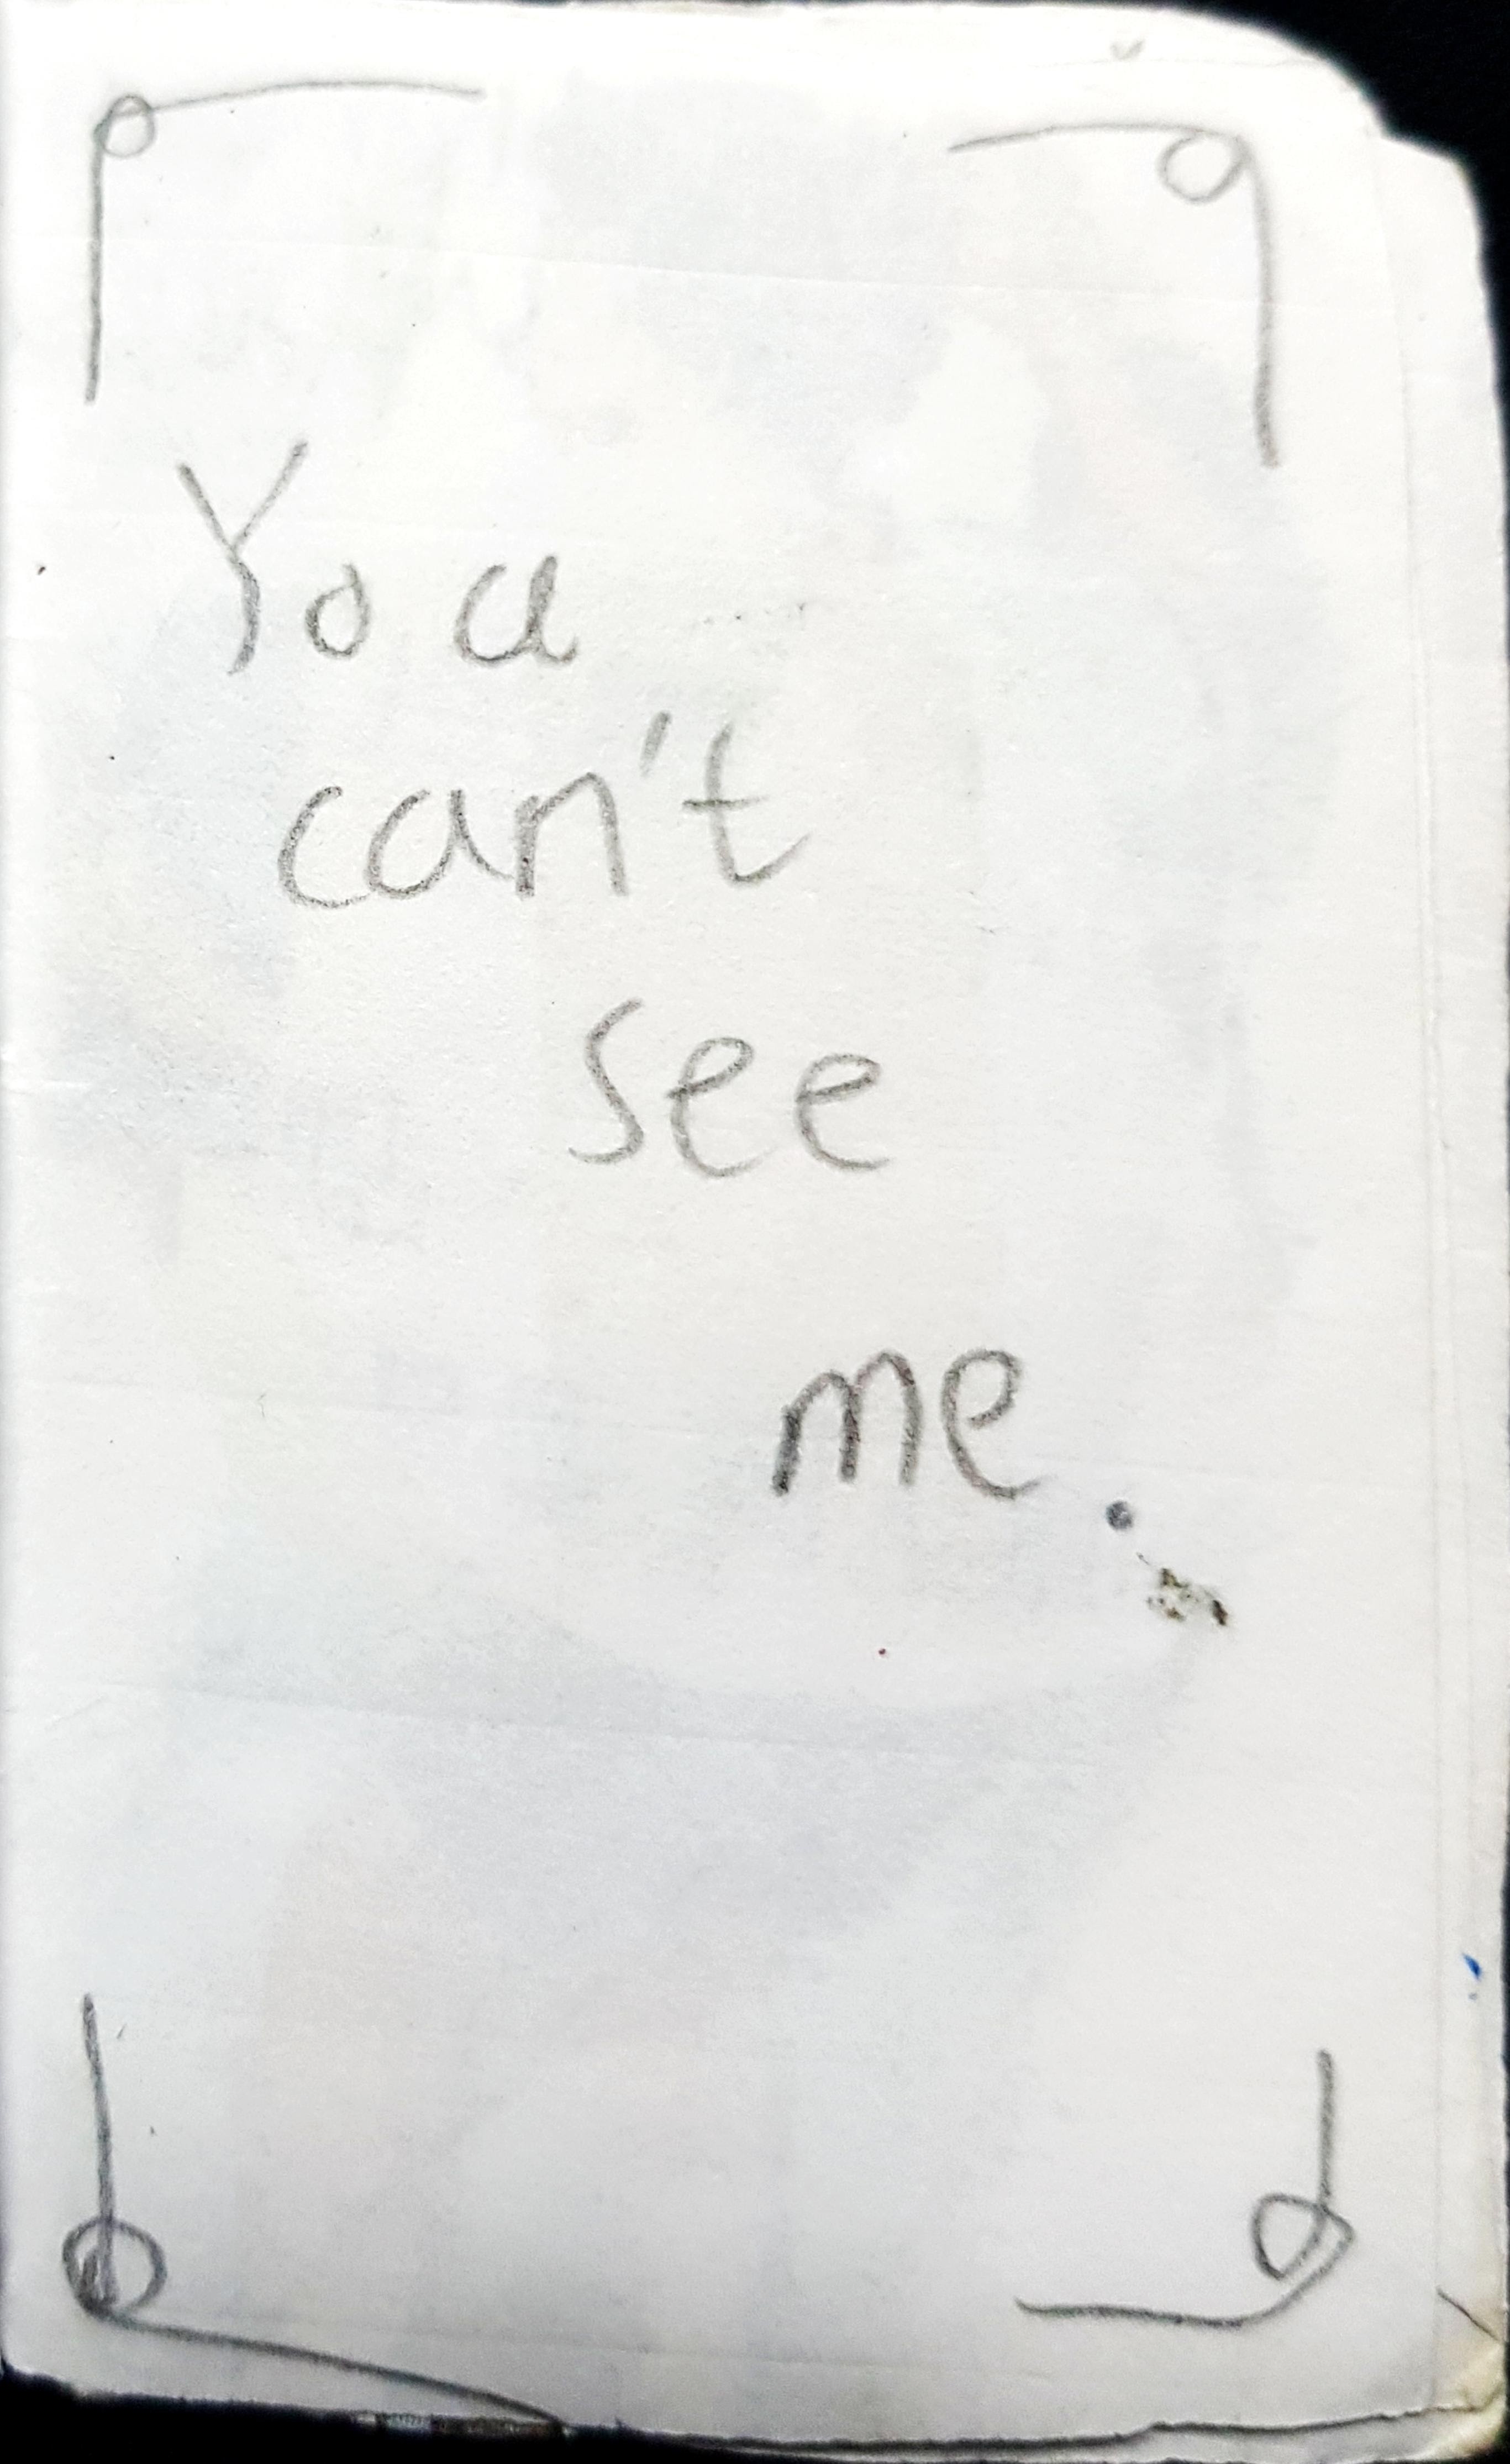 You
can't
see
me.